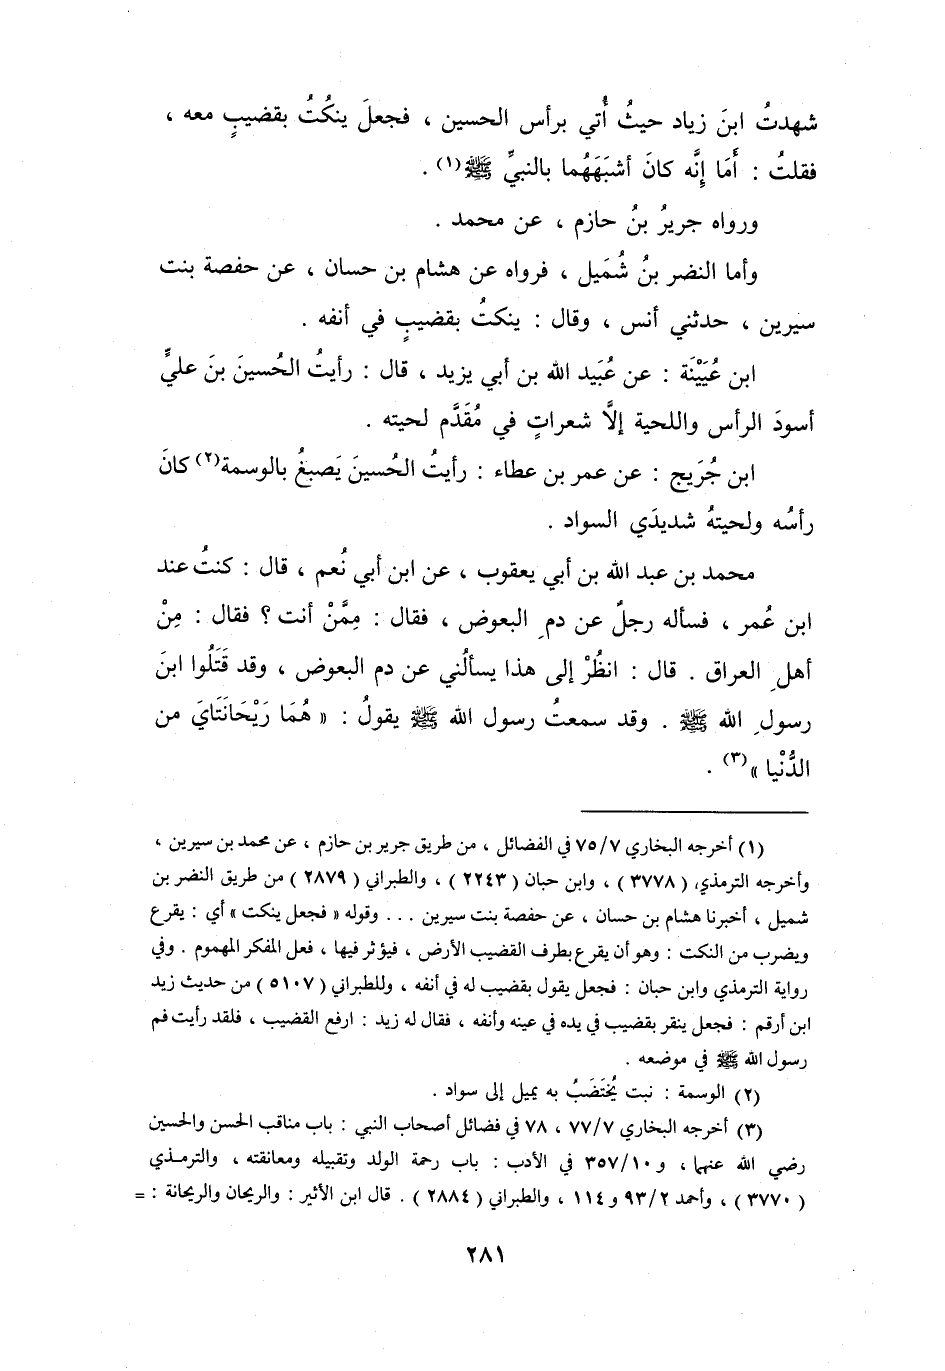 شهدتُ ابنَ زياد حيثُ أُتي برأس الحسين ، فجعلَ ينكُتُ بقضيبٍ معه ،
فقلتُ : أَمَا إِنَّه كانَ أشبَهَهُما بالنبيِّ ﷺ(١) .
ورواه جريرُ بنُ حازم ، عن محمد .
وأما النضر بنُ شُمَيل ، فرواه عن هشام بن حسان ، عن حفصة بنت
سيرين ، حدثني أنس ، وقال : ينكتُ بقضيبٍ في أنفه .
ابن عُيَيْنَة : عن عُبَيد الله بن أبي يزيد ، قال : رأيتُ الحُسينَ بنَ عليٍّ
أسودَ الرأس واللحية إلاَّ شعراتٍ في مُقَدَّم لحيته .
ابن جُرَيج : عن عمر بن عطاء : رأيتُ الحُسينَ يَصبغُ بالوسمة(٢) كانَ
رأسُه ولحيتهُ شديدَي السواد .
محمد بن عبد الله بن أبي يعقوب ، عن ابن أبي نُعم ، قال : كنتُ عند
ابن عُمر ، فسأله رجلٌ عن دمِ البعوض ، فقال : مِمَّنْ أنت ؟ فقال : مِنْ
أهلِ العراق . قال : انظُرْ إلى هذا يسألُني عن دم البعوض ، وقد قَتَلُوا ابنَ
رسولِ الله ﷺ . وقد سمعتُ رسول الله ﷺ يقولُ : « هُمَا رَيْحَانَتَايَ من
الدُّنْيا »(٣) .
(١) أخرجه البخاري ٧٥/٧ في الفضائل ، من طريق جرير بن حازم ، عن محمد بن سيرين ،
وأخرجه الترمذي ( ٣٧٧٨ ) ، وابن حبان ( ٢٢٤٣ ) ، والطبراني ( ٢٨٧٩ ) من طريق النضر بن
شميل ، أخبرنا هشام بن حسان ، عن حفصة بنت سيرين . . . وقوله « فجعل ينكت » أي : يقرع
ويضرب من النكت : وهو أن يقرع بطرف القضيب الأرض ، فيؤثر فيها ، فعل المفكر المهموم . وفي
رواية الترمذي وابن حبان : فجعل يقول بقضيب له في أنفه ، وللطبراني ( ٥١٠٧ ) من حديث زيد
ابن أرقم : فجعل ينقر بقضيب في يده في عينه وأنفه ، فقال له زيد : ارفع القضيب ، فلقد رأيت فم
رسول الله ﷺ في موضعه .
(٢) الوسمة : نبت يُختَضَبُ به يميل إلى سواد .
(٣) أخرجه البخاري ٧٧/٧ ، ٧٨ في فضائل أصحاب النبي : باب مناقب الحسن والحسين
رضي الله عنهما ، و ٣٥٧/١٠ في الأدب : باب رحمة الولد وتقبيله ومعانقته ، والترمذي
( ٣٧٧٠ ) ، وأحمد ٩٣/٢ و ١١٤ ، والطبراني ( ٢٨٨٤ ) . قال ابن الأثير : والريحان والريحانة : =
٢٨١